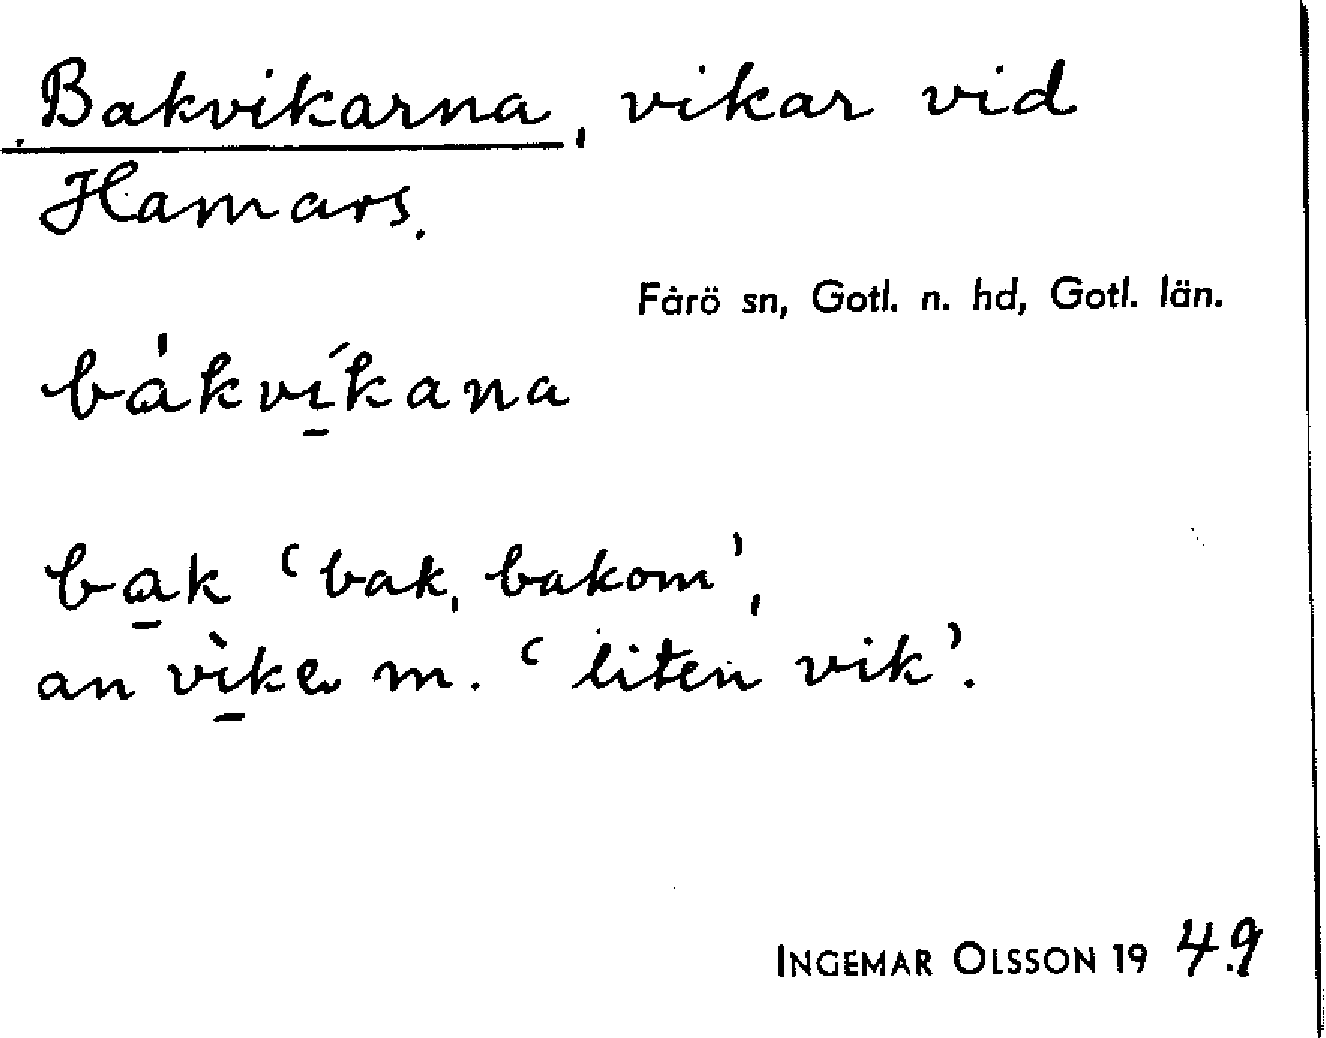 Bakvikarna, vikar vid
Hamars.
Fårö sn, Gotl. n. hd, Gotl. län.
bákví̱kana
ba̱k ‘bak, bakom’,
an vì̱ke m. ‘liten vik’.
INGEMAR OLSSON 19 49